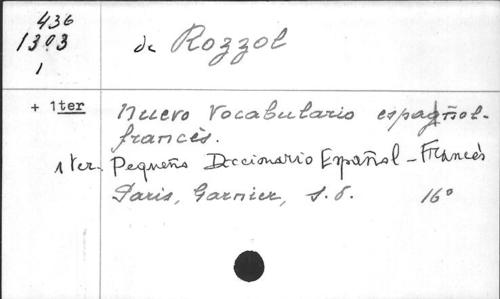 436
1303
1
de Rozzol
+ 1ter
Nuevo Vocabulario español-
francès.
1 ter. Pequeño Diccionario Español - Francés
Paris, Garnier, s. d. 16°